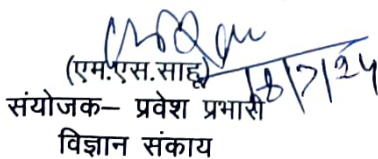 (एम.एस.साहू)
18/7/24
संयोजक– प्रवेश प्रभारी
विज्ञान संकाय